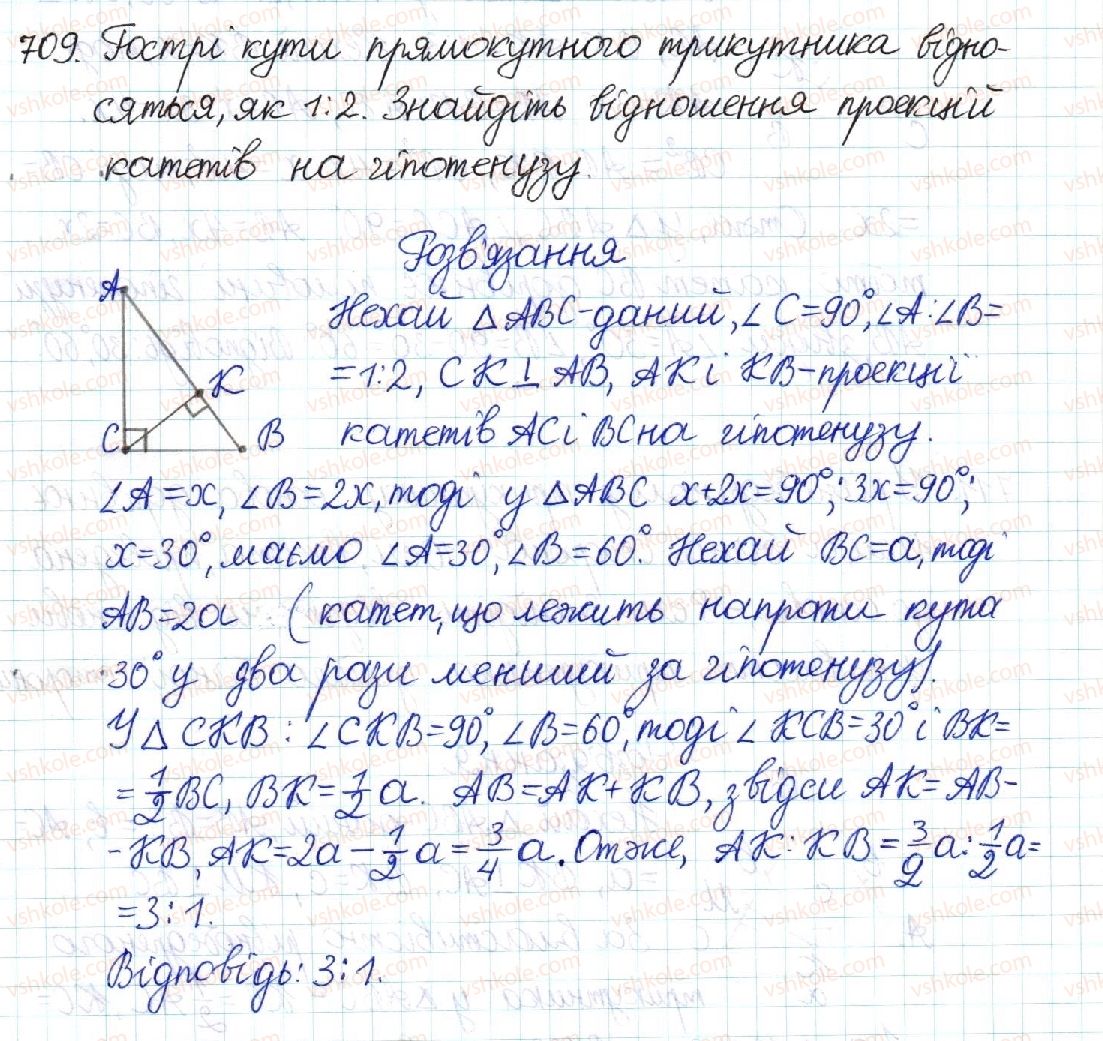 709. Гострі кути прямокутного трикутника відно-
сяться, як 1:2. Знайдіть відношення проекцій
катетів на гіпотенузу.
Розв'язання
A
K
C
B
Нехай △ABC-даний, ∠C=90°, ∠A:∠B=
=1:2, CK⊥AB, AK і KB-проекції
катетів AC і BC на гіпотенузу.
∠A=x, ∠B=2x, тоді у △ABC x+2x=90°; 3x=90°;
x=30°, маємо ∠A=30°, ∠B=60°. Нехай BC=a, тоді
AB=2a (катет, що лежить напроти кута
30° у два рази менший за гіпотенузу).
У △CKB: ∠CKB=90°, ∠B=60°, тоді ∠KCB=30° і BK=
=1/2 BC, BK=1/2 a. AB=AK+KB, звідси AK=AB-
-KB, AK=2a-1/2 a=3/4 a. Отже, AK:KB=3/2 a:1/2 a=
=3:1.
Відповідь: 3:1.